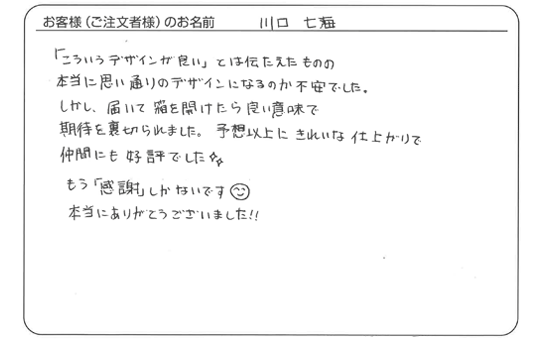 お客様(ご注文者様)のお名前 川口 七海
「こういうデザインが良い」とは伝たえたものの
本当に思い通りのデザインになるのか不安でした。
しかし、届いて箱を開けたら良い意味で
期待を裏切られました。予想以上にきれいな仕上がりで
仲間にも好評でした✨
もう「感謝」しかないです☺
本当にありがとうございました!!